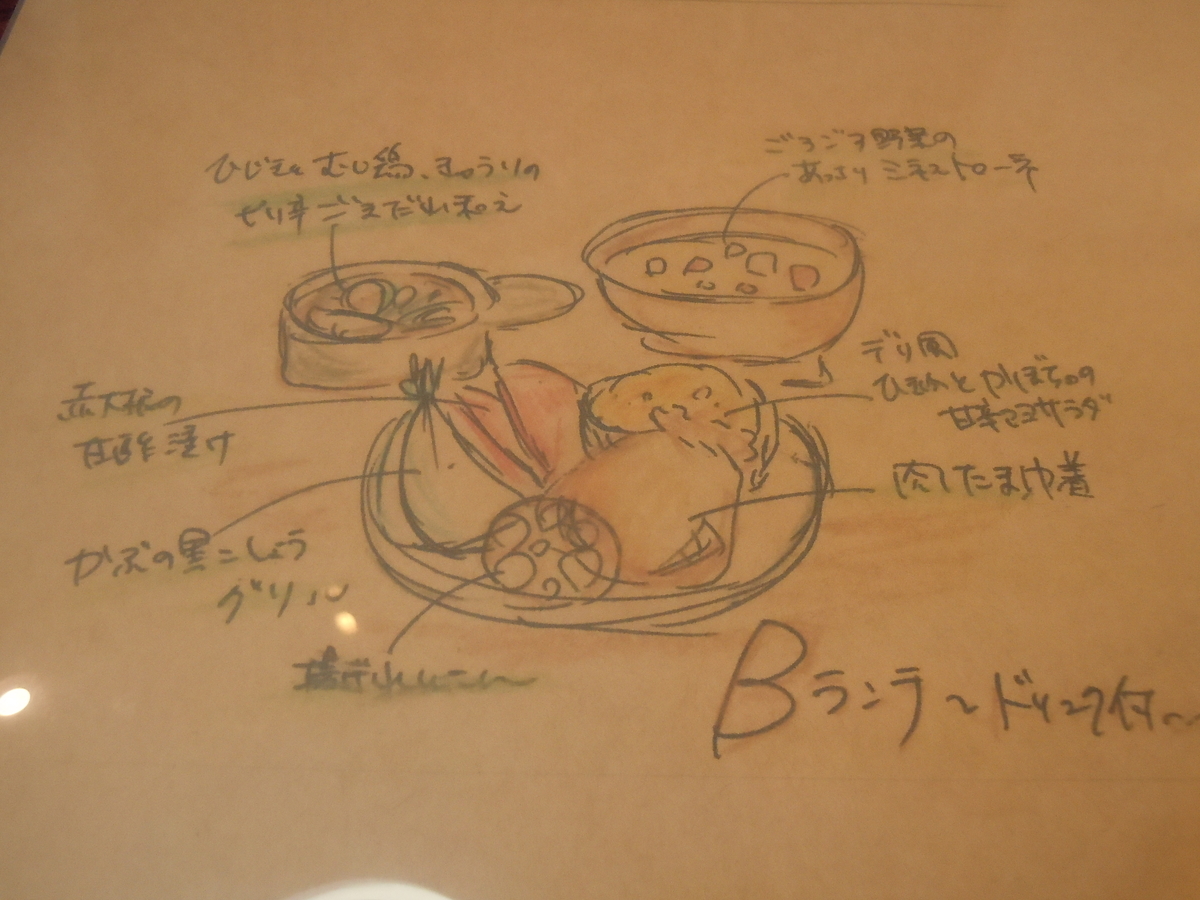 ひじきとむし鶏、きゅうりの
ピリ辛ごまだれ和え
ごろごろ野菜の
あっさりミネストローネ
デリ風
ひじきとかぼちゃの
甘辛マヨサラダ
赤大根の
甘酢漬け
肉じたま巾着
かぶの黒こしょう
グリル
揚げれんこん
Bランチ～ドリンク付～